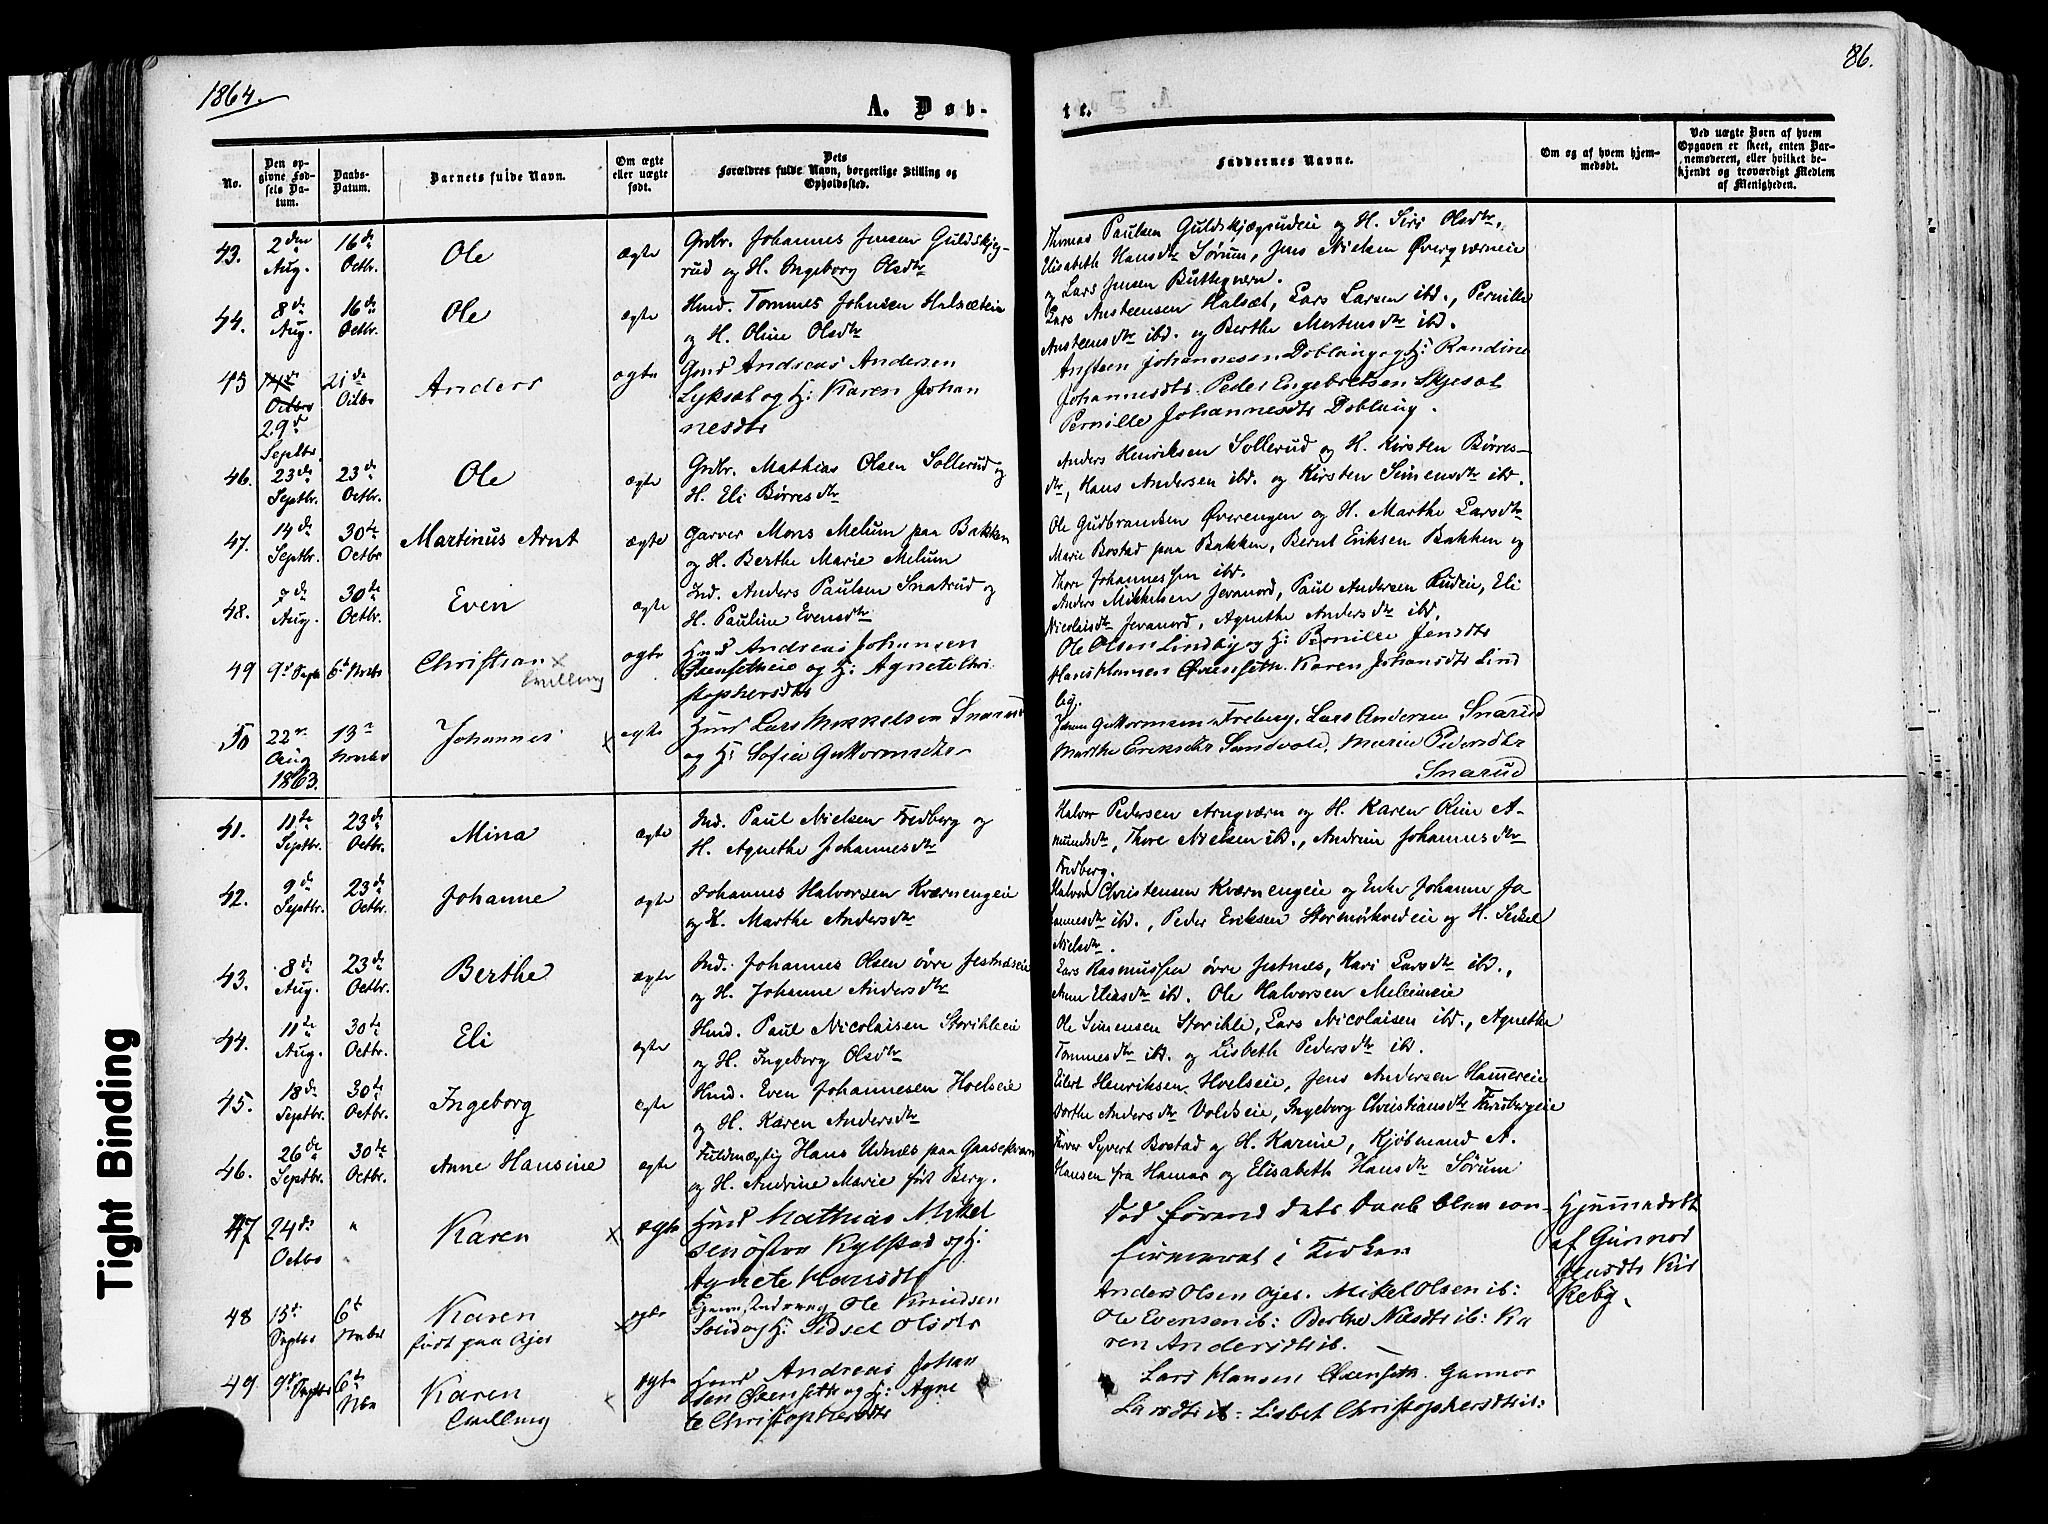 1864.
86.
A. Døb-
te.
No.
Den op-
givne Fød-
sels Da-
tum.
Daabs-
Datum.
Barnets fulde Navn.
Om ægte
eller uægte
født.
Dets
Forældres fulde Navn, borgerlige Stilling og
Opholdssted.
Faddernes Navne.
Om og af hvem hjem-
medøbt.
Ved uægte Børn af hvem
Opgaven er skeet, enten Bar-
nemoderen, eller hvilket be-
kjendt og troværdigt Medlem
af Menigheden.
43. 2den Aug. 16de Octbr. Ole ægte
Grdbr. Johannes Jensen Guldskjeg-
rud og H. Ingeborg Olsdtr
Thomas Paulsen Guldskjægrudeie og H. Siri Olsdtr,
Elisabeth Hansdtr Sørum, Jens Nielsen Øvergværneie
og Lars Jensen Buttegværn.
44. 8de Aug. 16de Octbr. Ole ægte
Hmd. Tommes Johnsen Halsæteie
og H. Oline Olsdtr
Lars Austeensen Halsæt, Lars Larsen ibd., Pernille
Austeensdtr ibd. og Berthe Mortensdtr ibd.
45 29d Septbr. 21de Octbr Anders ægte
Gmd Andreas Andersen
Lyksæt og H: Karen Johan
nesdtr
Ansteen Johannesen Doblaug og H: Randine
Johannesdtr Peder Engebretsen Skjesæt
Pernille Johannesdtr Doblaug.
46. 23de Septbr. 23de Octbr. Ole ægte
Grdbr. Mathias Olsen Sollerud og
H. Eli Børresdtr
Anders Henriksen Sollerud og H. Kirsten Børres-
dtr, Hans Andersen ibd. og Kirsten Simensdtr ibd.
47. 14de Septbr. 30te Octbr Martinus Arnt ægte
Garver Mons Melum paa Bakken
og H. Berthe Marie Melum
Ole Gudbrandsen Øverengen og H. Marthe Larsdtr
Marie Bostad paa Bakken, Bernt Eriksen Bakken og
Thore Johannessen ibd.
48. 7de Aug. 30te Octbr. Even ægte
Ind. Anders Paulsen Snarud og
H. Pauline Evensdtr
Anders Mikkelsen Jevanord, Paul Andersen Rudeie, Eli
Nicolaisdtr Jevanord, Agnethe Andersdtr ibd.
49 9d Septb 6te Novbr Christian x
Tvilling
ægte
Hmd Andreas Johansen
Øxensetheie og H: Agnete Chri-
stophersdtr
Ole Olsen Lindby og H: Pernille Jensdtr
Hans Hansen Øxenseth. Karen Johansdtr Lind
by.
50 22de Aug 1863. 13de Novbr Johannes x ægte
Hmd Lars Mikkelsen Snarud
og H: Sofie Guttormsdtr
Guttormsen Freberg, Lars Andersen Snarud
Marthe Eriksdtr Sandvold, Marie Pedersdtr
Snarud
41. 11te Septbr. 23de Octbr. Mina ægte
Ind. Paul Nielsen Fredberg og
H. Agnethe Johannesdtr
Halvor Pedersen Arngværn og H. Karen Oline A-
mundsdtr, Thore Nielsen ibd., Andrine Johannesdtr
Fredberg.
42. 9de Septbr. 23de Octbr. Johanne ægte
Johannes Halvorsen Kværnengeie
og H. Marthe Andersdtr
Halvor Christensen Kværnengeie og Enke Johanne Jo
hannesdtr ibd., Peder Eriksen Stormørkvedeie og H. Seckel
Nielsdtr.
43. 8de Aug. 23de Octbr. Berthe ægte
Ind. Johannes Olsen øvre Jestnæseie
og H. Johanne Andersdtr
Lars Rasmussen øvre Jestnæs, Kari Larsdtr ibd.,
Anne Eliasdtr ibd. Ole Halvorsen Melumeie
44. 11te Aug. 30te Octbr. Eli ægte
Hmd. Paul Nicolaisen Storihleeie
og H. Ingeborg Olsdtr
Ole Simensen Storihle, Lars Nicolaisen ibd., Agnethe
Tommesdtr ibd. og Lisbeth Pedersdtr ibd.
45. 18de Septbr. 30te Octbr. Ingeborg ægte
Hmd. Even Johannesen Hoelseie
og H. Karen Andersdtr
Eilert Henriksen Hvelseie, Jens Andersen Hamereie
Dorthe Andersdtr Voldseie, Ingeborg Christiansdtr Furubergeie
46. 26de Septbr. 30te Octbr. Anne Hansine ægte
Fuldmægtig Hans Udnæs paa Gaasekværn
og H. Andrine Marie født Berg.
Farver Syvert Bostad og H. Karine, Kjøbmand A.
Hansen fra Hamar og Elisabeth Hansdtr Sørum
47 24de Octbr " Karen x ægte
Hmd Mathias Mikel
sen østre Kylstad og H:
Agnete Hansdtr
Død førend dets Daab blev con-
firmeret i Kirken
Hjemmedøbt
af Gunnor
Jensdtr Kir
keby.
48 15de Septbr 6te Novbr Karen
født paa Ajer
x ægte
Ole Knudsen
og H: Sidsel Olsdtr
Anders Olsen Ajer. Mikel Olsen ib:
Ole Evensen ib: Berthe Nilsdtr ib: Ka
ren Andersdtr ib.
49. 9de Septbr 6te Nbr Karen
Tvilling
ægte
Hmd Andreas Johan
sen Øxenseth og H: Agne
te Christophersdtr
Lars Hansen Oxenseth. Gunnor
Larsdtr ib: Lisbet Christophersdtr ib:
Tight Binding